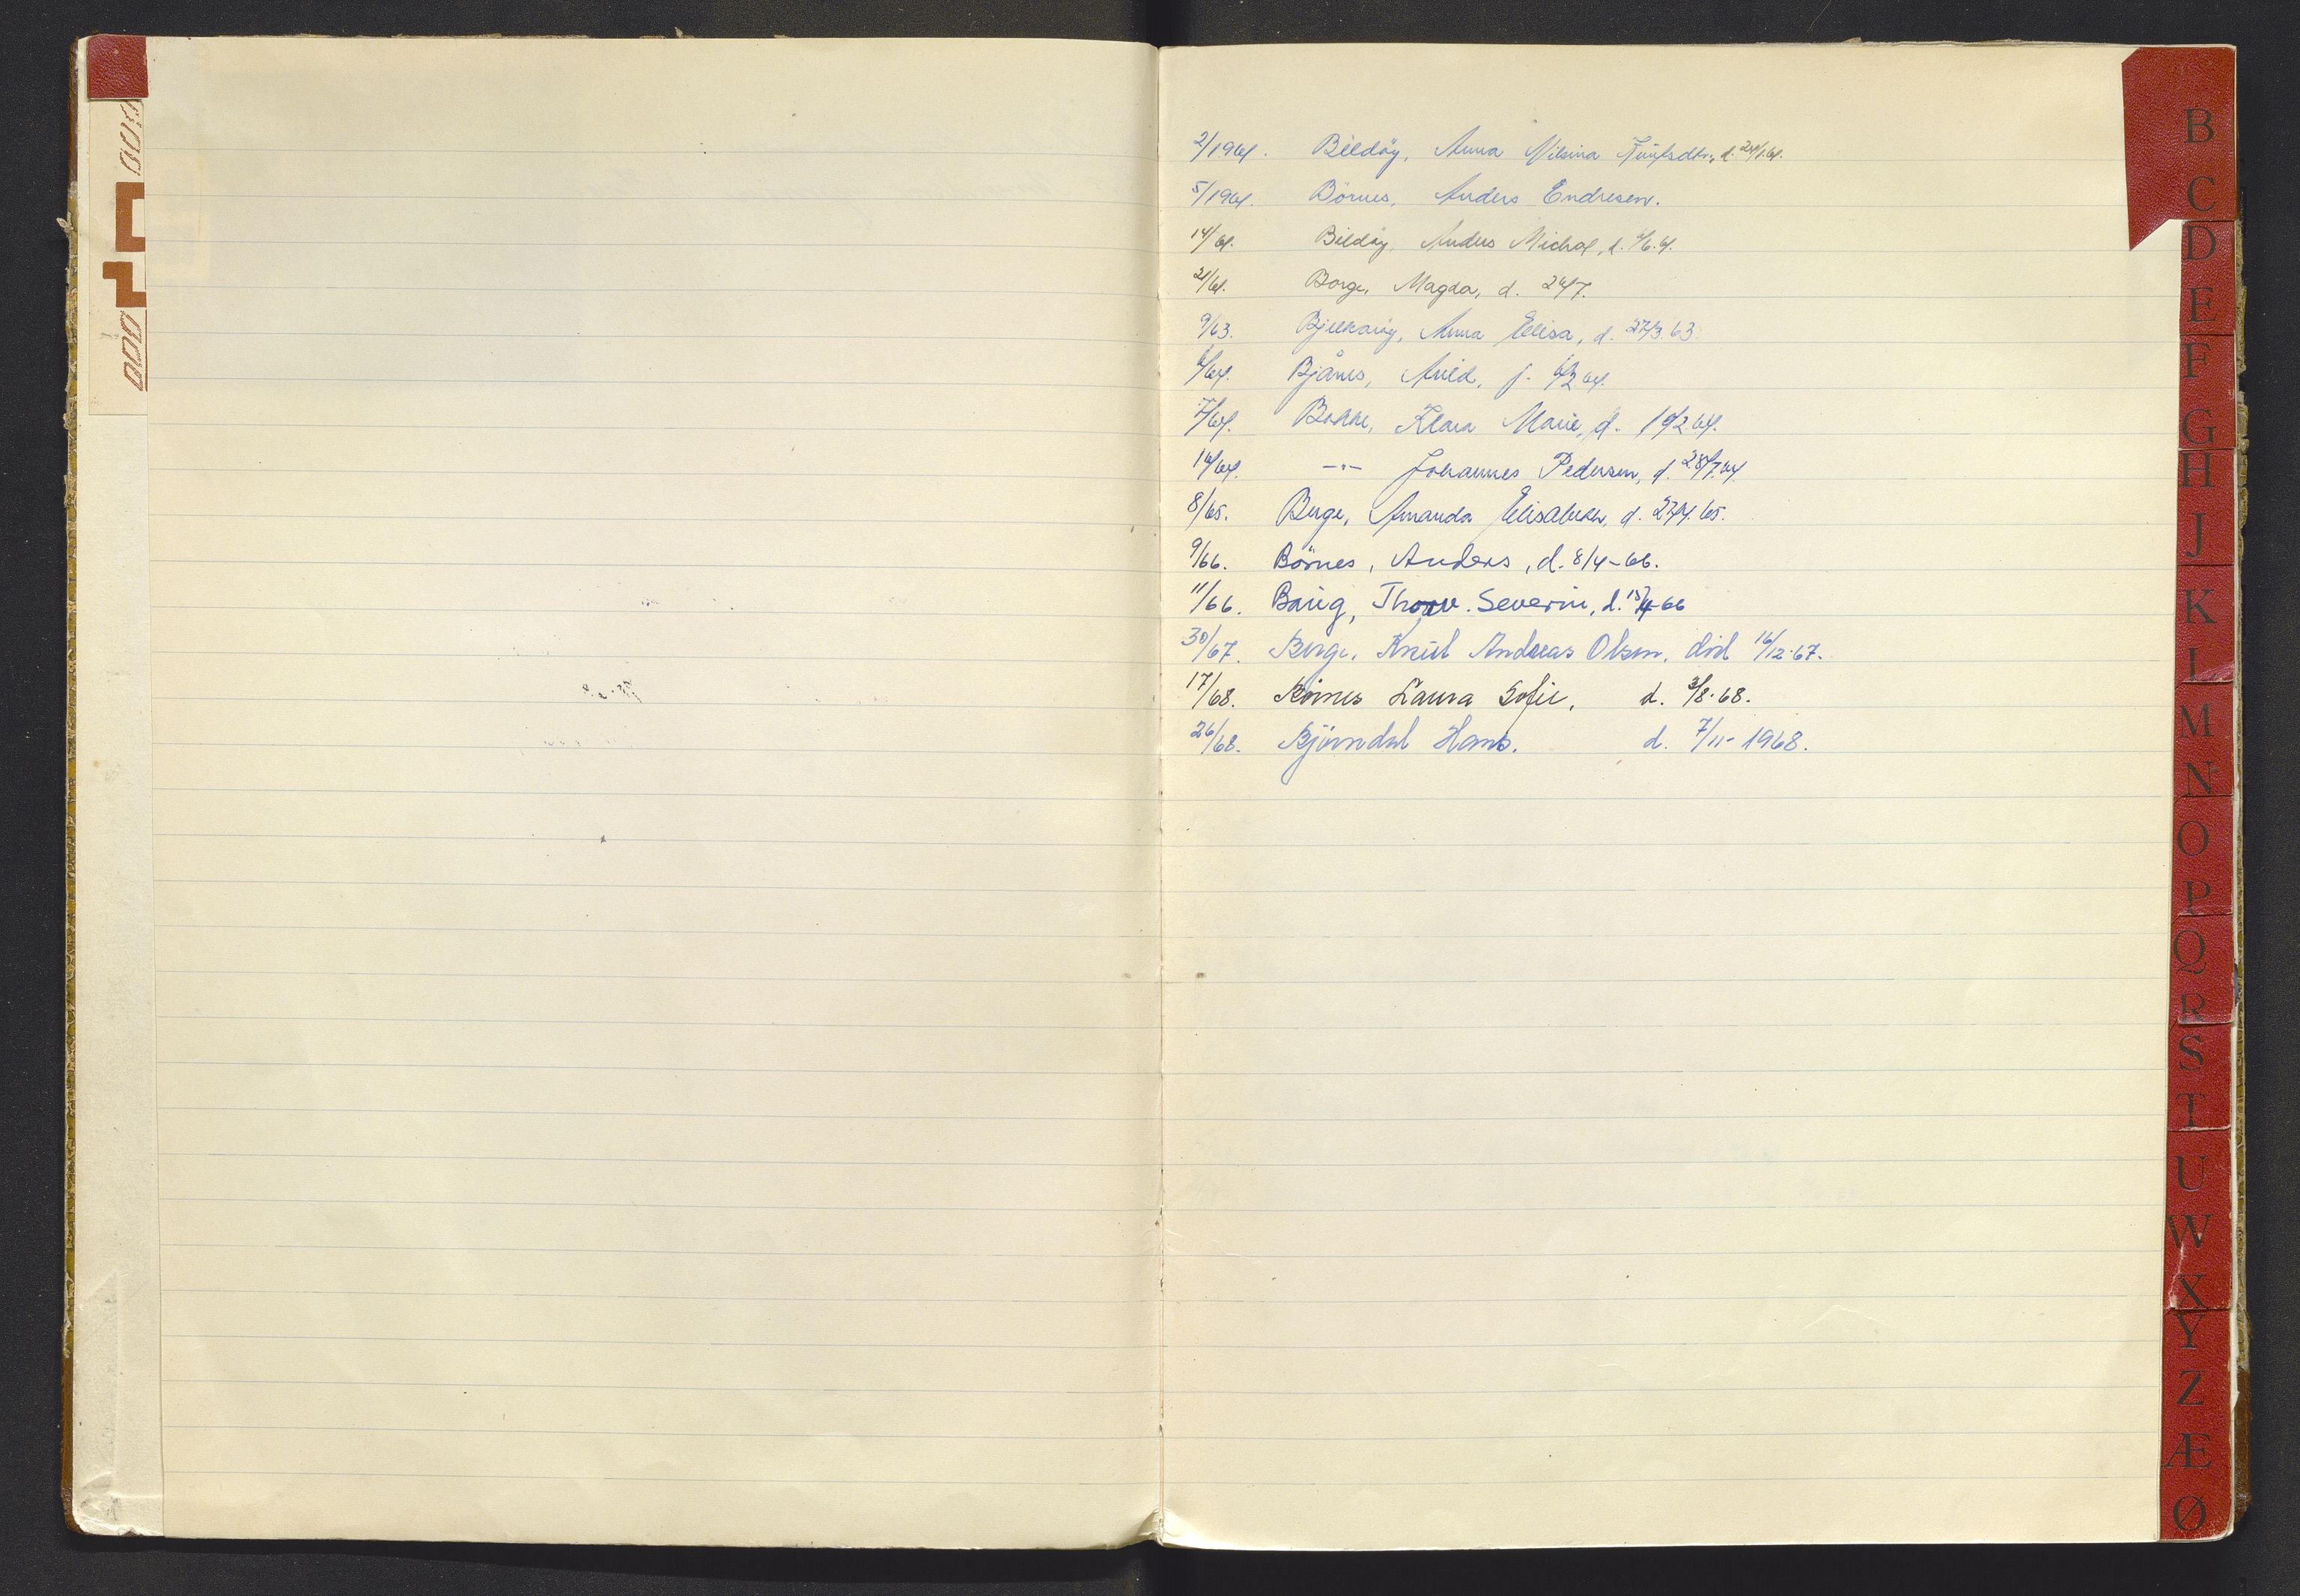 2/1961. Bildöy, Anna Nilsina Knutsdtr., d. 24/1.61.
5/1961. Börnes, Anders Endresen.
14/61. Bildöy, Anders Michal, d. /6.61.
21/61. Borge, Magda, d. 24/7.
9/63. Bjelkaröy, Anna Elisa, d. 27/3.63.
6/64. Bjånes, Arild, f. /2 64.
7/64. Bakke, Klara Marie, d. 19/2 64.
14/64. —"— Johannes Pedersen, d. 28/7.64
8/65. Berge, Amanda Elisabeth, d. 27/4.65.
9/66. Börnes, Anders, d. 8/4-66.
11/66. Severin, d. 15/4-66
30/67. Berge, Knut Andreas Olsen, död 16/12-67.
17/68. Börnes Laura Sofie. d. 3/8-68.
26/68. Björndal Hans. d. 7/11-1968.
B
C
D
E
F
G
H
J
K
L
M
N
O
P
Q
R
S
T
U
W
X
Y
Z
Æ
Ø